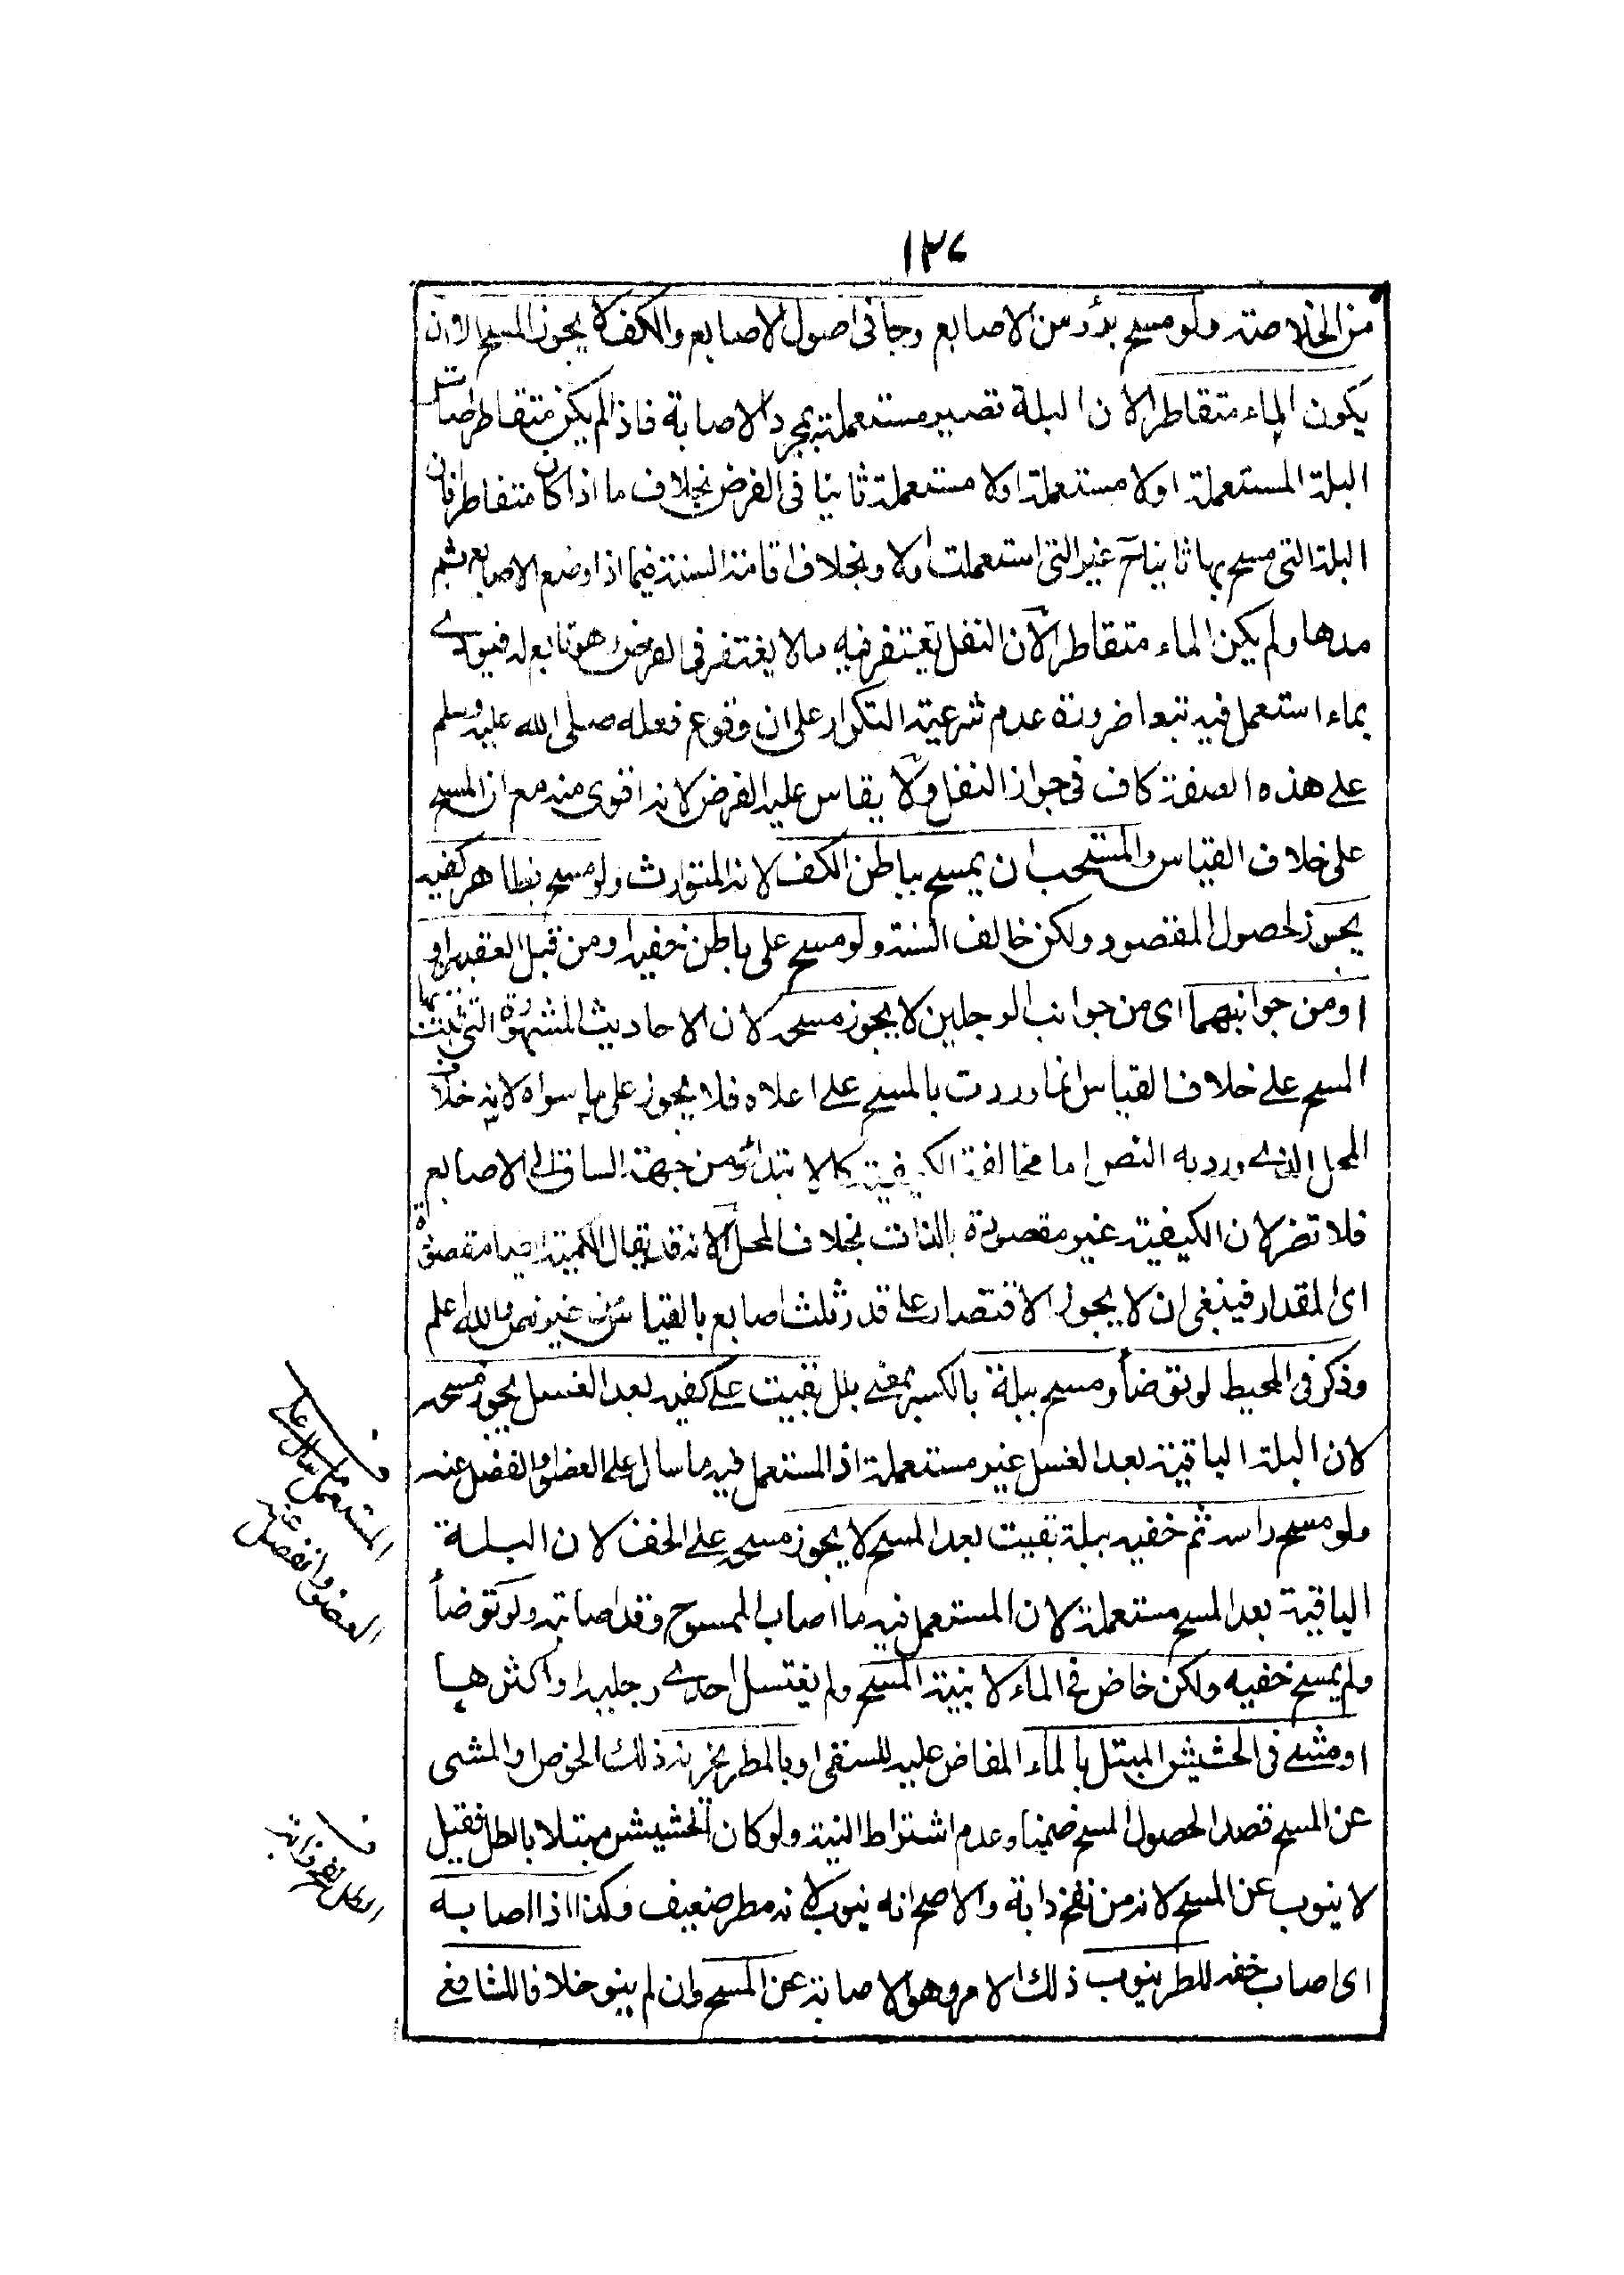 ١٣٧
من الخلاصة ولو مسح برؤس الاصابع وجافى اصول الاصابع والكف لا يجوز المسح الا ان
يكون الماء متقاطرا لان البلة تصير مستعملة بمجرد الاصابة فاذا لم يكن متقاطرا صارت
البلة المستعملة اولا مستعملة اولا مستعملة ثانيا فى الفرض بخلاف ما اذا كان متقاطرا فان
البلة التى مسح بها ثانيا غير التى استعملت اولا وبخلاف اقامة السنة فيما اذا وضع الاصابع ثم
مدها ولم يكن الماء متقاطرا لان النفل يغتفر فيه ما لا يغتفر فى الفرض وهو تابع له فيؤدى
بماء استعمل فيه تبعا ضرورة عدم شرعية التكرار على ان وقوع فعله صلى الله عليه وسلم
على هذه الصفة كاف فى جواز النفل ولا يقاس عليه الفرض لانه اقوى منه مع ان المسح
على خلاف القياس والمستحب ان يمسح بباطن الكف لانه المتوارث ولو مسح بظاهر كفيه
يجوز لحصول المقصود ولكن خالف السنة ولو مسح على باطن خفيه او من قبل العقبين او
او من جوانبهما اى من جوانب الرجلين لا يجوز مسحه لان الاحاديث المشهورة التى ثبت بها
المسح على خلاف القياس انما وردت بالمسح على اعلاه فلا يجوز على ما سواه لانه خلاف
المحل الذى ورد به النص اما مخالفة الكيفية كالابتداء من جهة الساق الى الاصابع
فلا تضر لان الكيفية غير مقصودة بالذات بخلاف المحل لانه قد يقال الكمية ايضا مقصودة
اى المقدار فينبغى ان لا يجوز الاقتصار على قدر ثلث اصابع بالقياس من غير نص والله اعلم
وذكر فى المحيط لو توضأ ومسح ببلة بالكسر بمعنى بلل بقيت على كفيه بعد الغسل يجوز مسحه
لان البلة الباقية بعد الغسل غير مستعملة اذ المستعمل فيه ما سال على العضو وانفصل عنه
ولو مسح راسه ثم خفيه ببلة بقيت بعد المسح لا يجوز مسحه على الخف لان البلة
الباقية بعد المسح مستعملة لان المستعمل فيه ما اصاب الممسوح وقد اصابته ولو توضأ
ولم يمسح خفيه ولكن خاض فى الماء لا بنية المسح ولم يغتسل احدى رجليه او اكثرها
او مشى فى الحشيش المبتل بالماء المفاض عليه للسقى او بالمطر يجزيه ذلك الخوض او المشى
عن المسح قصدا لحصول المسح ضمنا وعدم اشتراط النية ولو كان الحشيش مبتلا بالطل فقيل
لا ينوب عن المسح لانه من نفخ دابة والاصح انه ينوب لانه مطر ضعيف وكذا اذا اصابه
اى اصاب خفه المطر ينوب ذلك الامر وهو الاصابة عن المسح وان لم ينو خلافا للشافعى
المستعمل ما سال على
العضو وانفصل عنه